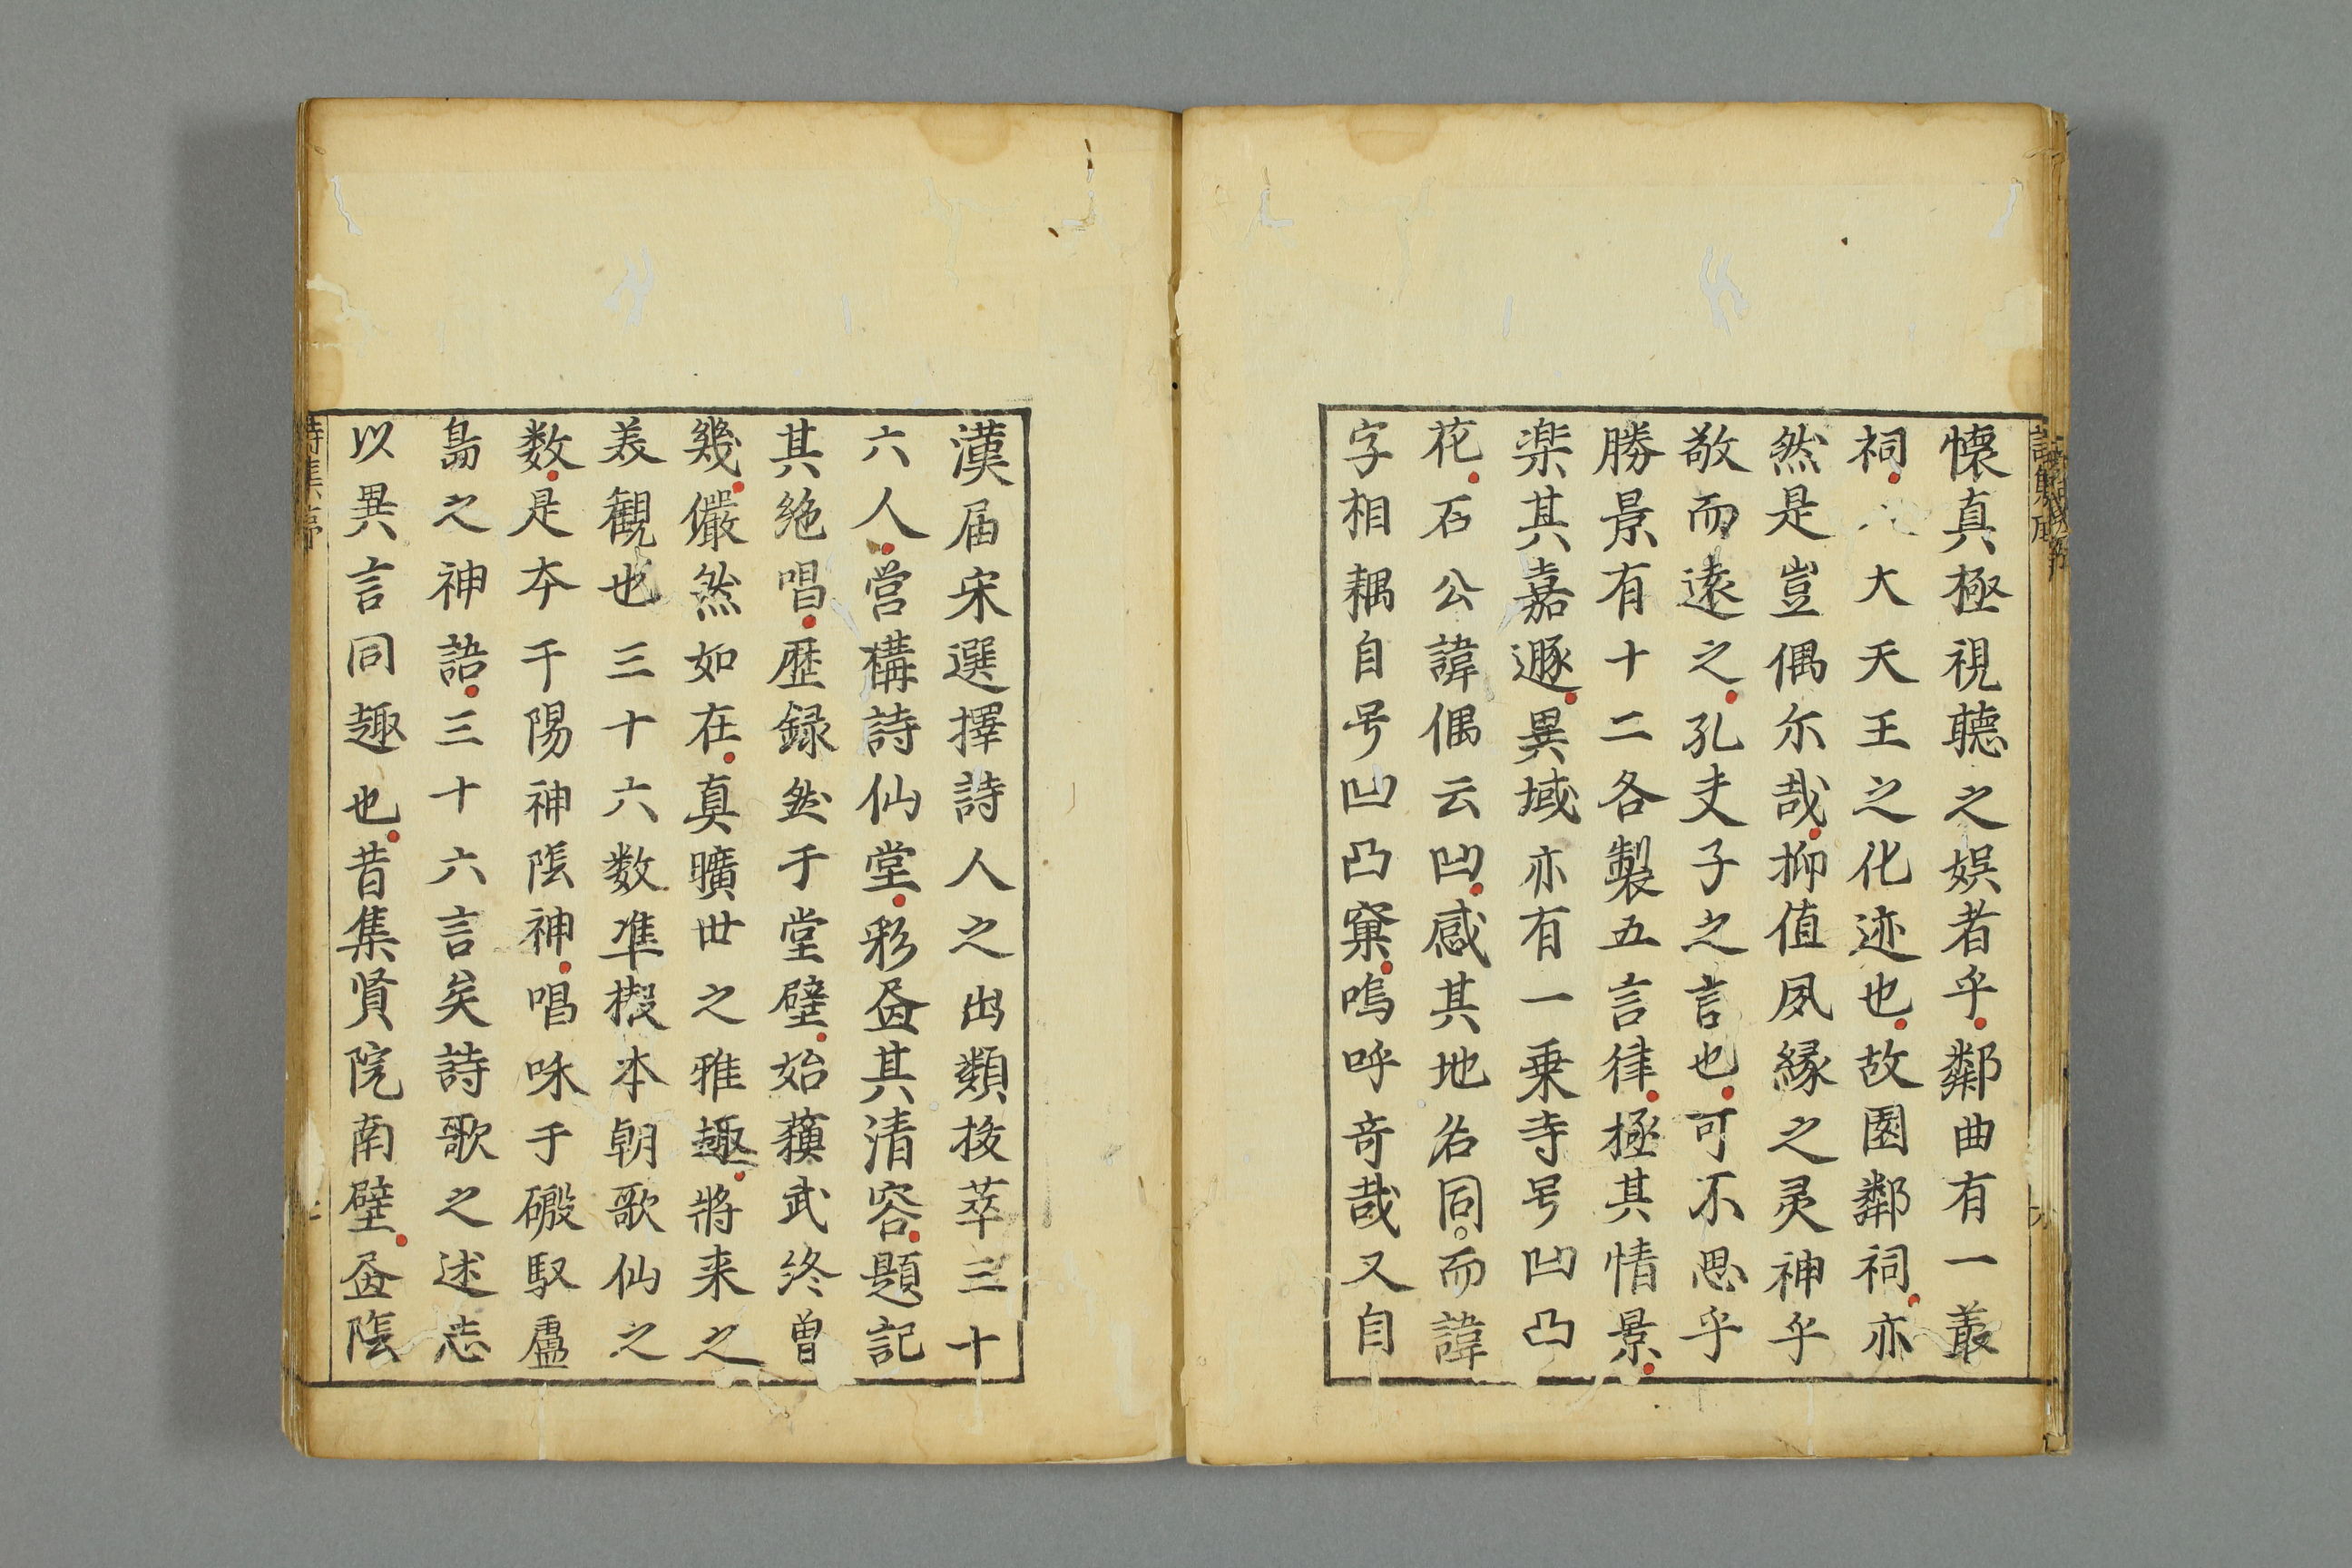 懐真極視聴之娯者乎鄰曲有一叢
祠八大天王之化迹也故園鄰祠亦
然是豈偶尓哉抑值夙縁之灵神乎
敬而遠之孔夫子之言也可不思乎
勝景有十二各製五言律極其情景
楽其嘉遯異域亦有一乗寺号凹凸
花石公諱偶云凹感其地名同而諱
字相耦自号凹凸窠嗚呼奇哉又自
漢届宋選擇詩人之出類抜萃三十
六人営構詩仙堂彩畫其清容題記
其絶唱歴録然于堂壁始蘓武終曽
幾儼然如在真曠世之雅趣將来之
美観也三十六数準擬本朝歌仙之
数是夲干陽神陰神唱咊于磤馭盧
島之神語三十六言矣詩歌之述志
以異言同趣也昔集賢院南壁畫陰
詩集序